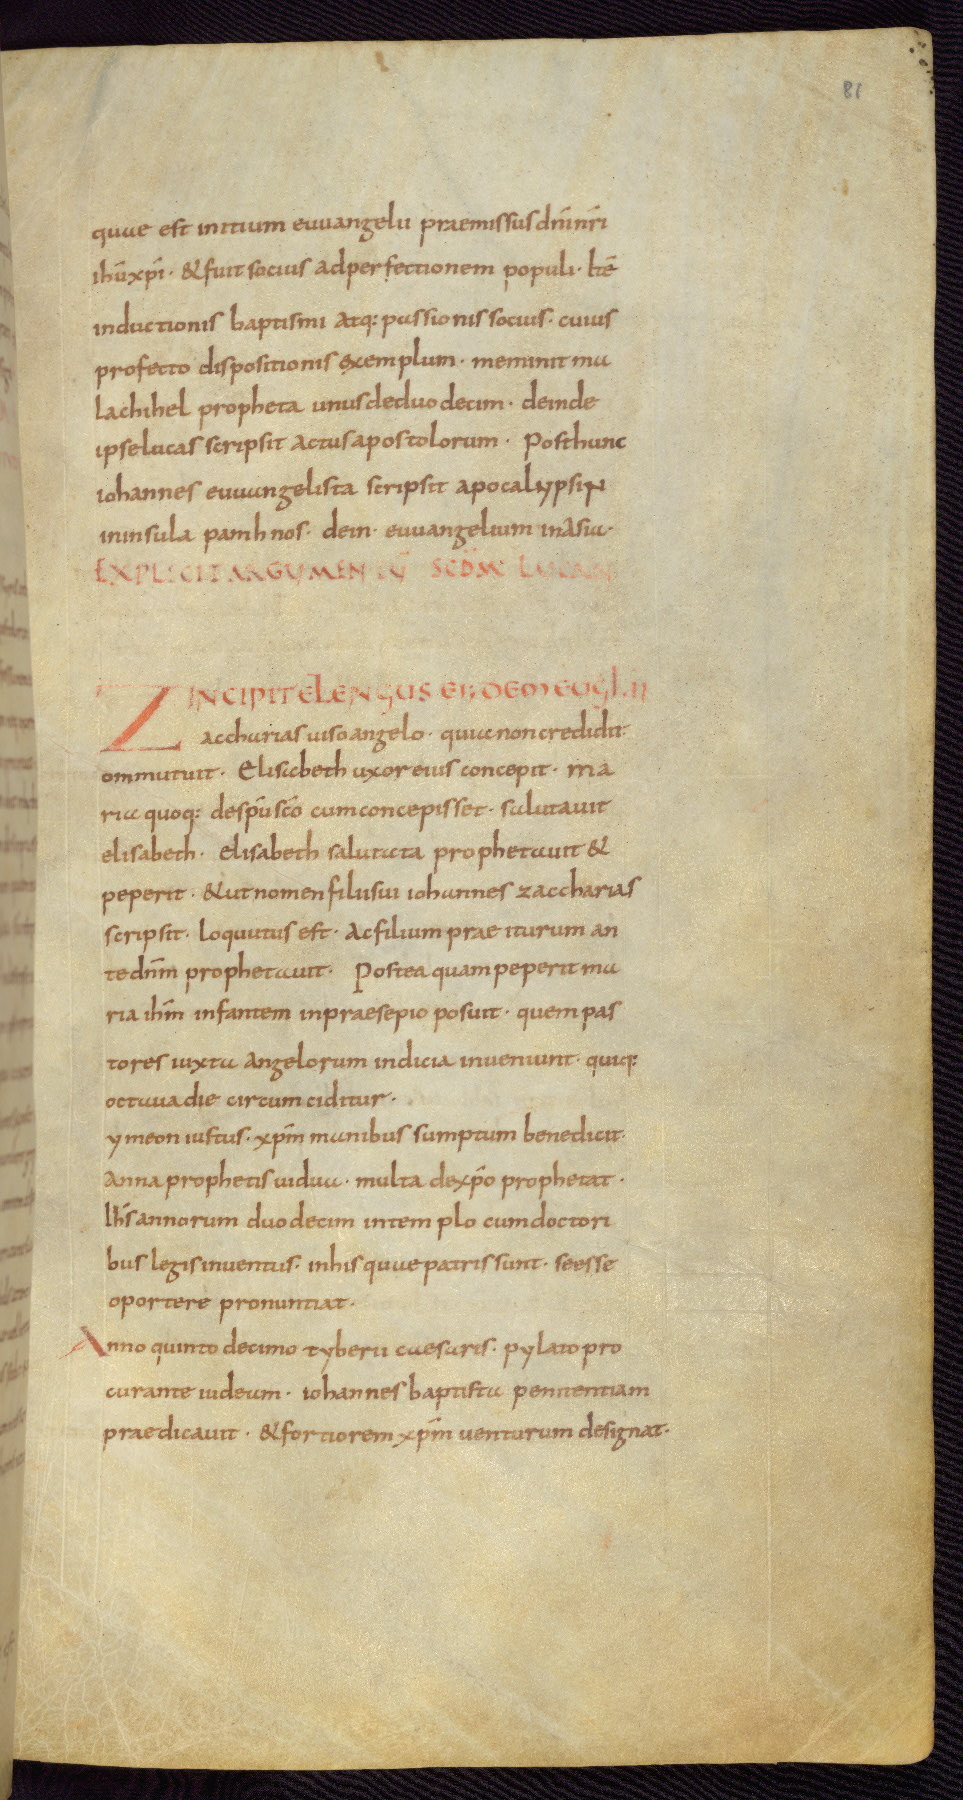 81
quae est initium euuangelii praemissus dn̄i nr̄i
ihū xp̄i · & fuit socius ad perfectionem populi · lt̄e
inductionis baptismi atq: passionis socius · cuius
profecto dispositionis exemplum · meminit ma
lachihel propheta unus de duodecim · deinde
ipse lucas scripsit actus apostolorum · Post hunc
iohannes euuangelista scripsit apocalypsin
in insula pamhnos · dein · euuangelium in asia ·
EXPLICIT ARGUMENTŪ SCDM LUCAN
INCIPIT ELENGUS EIUDEM EUGLII
Zaccharias uiso angelo · quia non credidit ·
ommutuit · Elisabeth uxor eius concepit · ma
ria quoq: de sp̄u sc̄o cum concepisset · salutauit
elisabeth · elisabeth salutata prophetauit &
peperit · & ut nomen filii sui iohannes zaccharias
scripsit · loquutus est · Ac filium prae iturum an
te dn̄m prophetauit · Postea quam peperit ma
ria ihm̄ infantem in praesepio posuit · quem pas
tores iuxta angelorum indicia inueniunt · quiq:
octaua die circumciditur ·
ymeon iustus · xp̄m manibus sumptum benedicit ·
Anna prophetis uidua · multa de xp̄o prophetat ·
Ih̄s annorum duodecim in templo cum doctori
bus legis inuentus · in his quae patris sunt · se esse
oportere pronuntiat ·
Anno quinto decimo tyberii caesaris · pylato pro
curante iudeam · iohannes baptista penitentiam
praedicauit · & fortiorem xp̄m uenturum designat ·